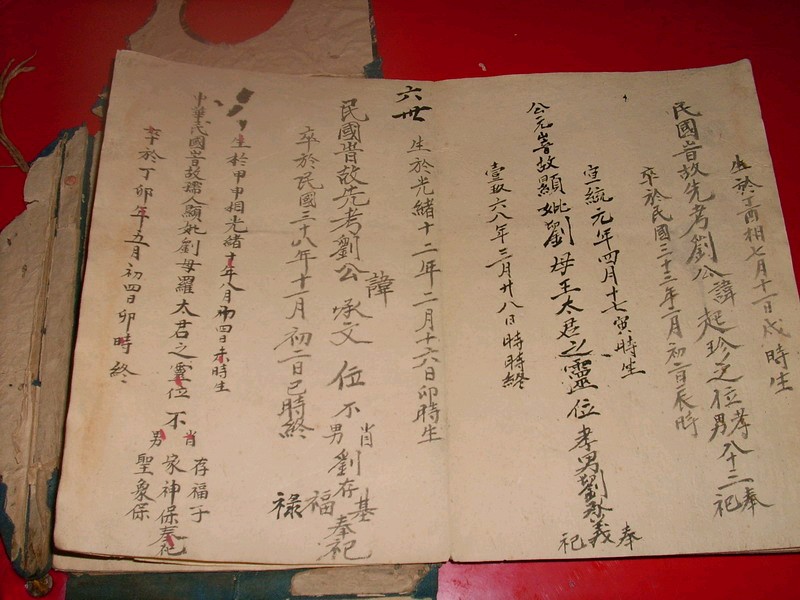 生於丁酉相七月十一日戌時生
民國皆故先考劉公諱起珍之位孝男八十三奉祀
卒於民國三十二年二月初一日辰時
宣統元年四月十七寅時生
公元皆故顯妣劉母王太君之靈位孝男劉承義奉祀
壹玖六八年三月廿八日時時終
六世
生於光緒十二年二月十六日卯時生
民國皆故先考劉公諱承文位不肖男劉存基福祿奉祀
卒於民國三十八年十一月初二日巳時終
生於甲申相光緒十年八月初四日未時生
中華民國皆故孺人顯妣劉母羅太君之靈位不肖男存福子家神保聖象保奉祀
卒於丁卯年五月初四日卯時終